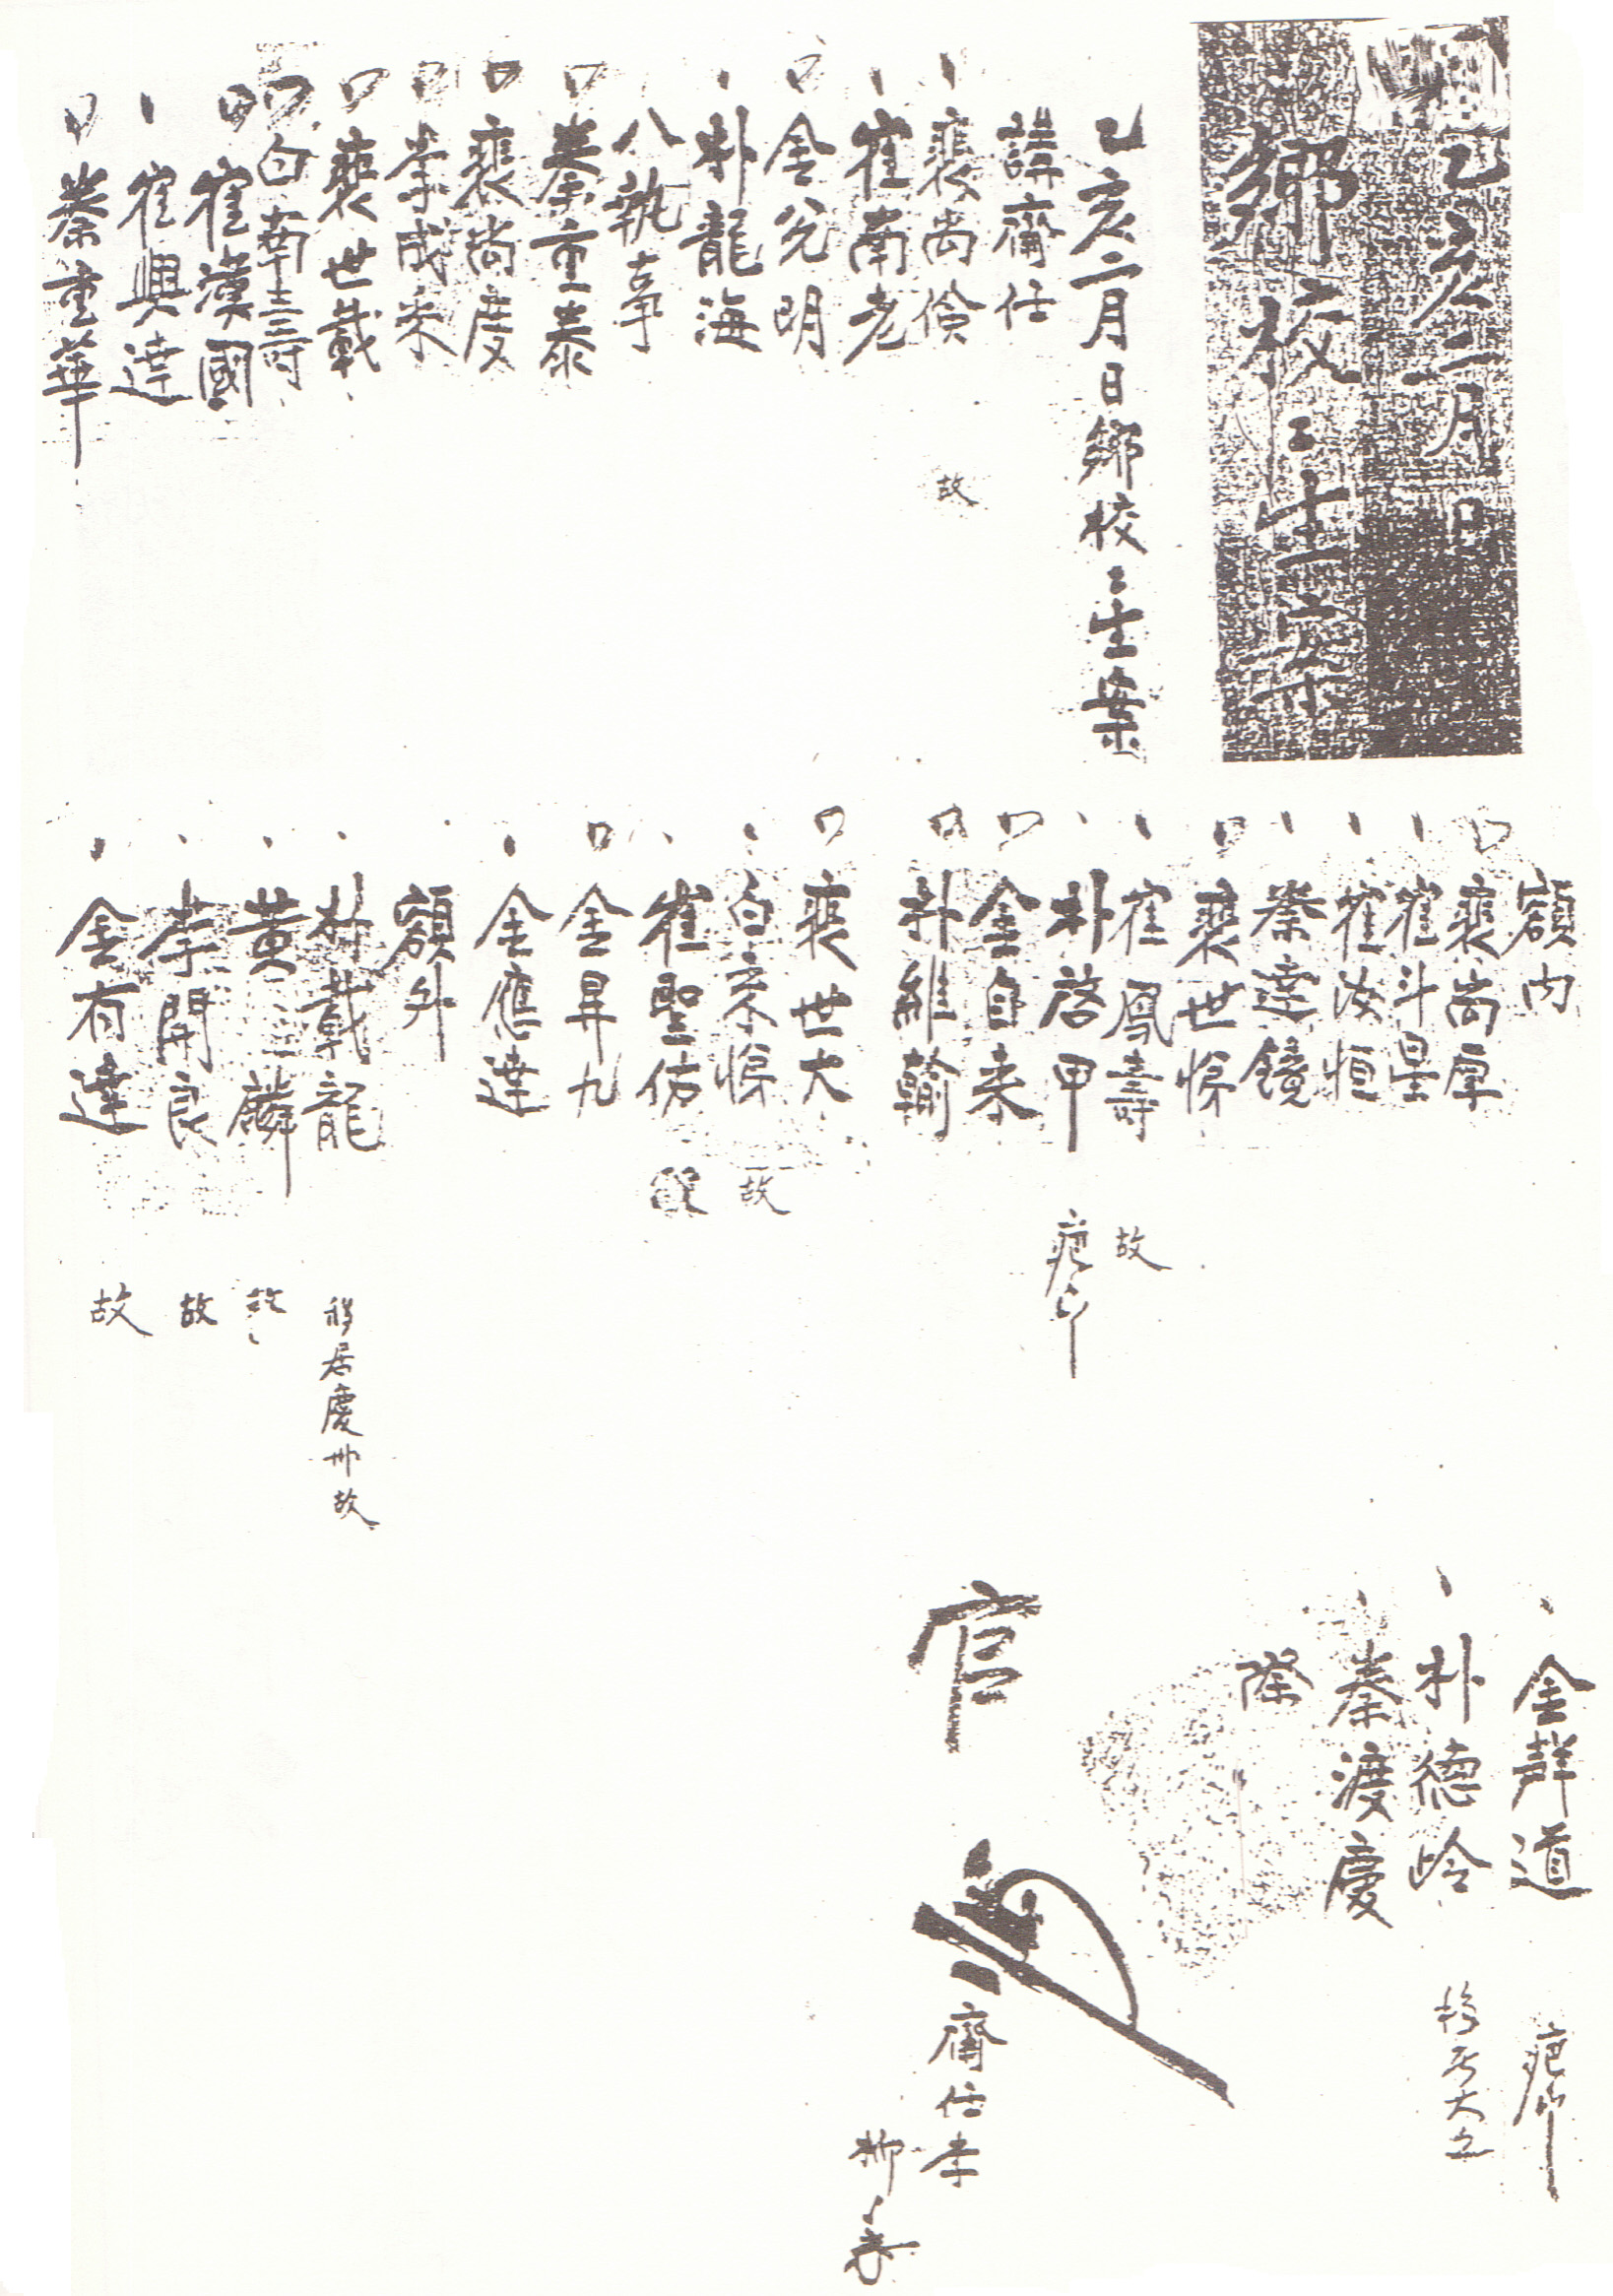 乙亥二月日
鄕校〻生案
乙亥二月日鄕校〻生案
講齋任
裵尙儉 故
崔南老
金兌明
朴龍海
八執事
秦重泰
裵尙度
李成采
裵世戴
白南壽
崔漢國
崔興達
秦重華
額內
裵尙厚
崔斗星
崔汝恒
秦達鏡
裵世悌
崔鳳壽 故
朴啓甲
金自來
朴維翰
裵世大
白宗悌 故
崔聖佑
金昇九
金應達
額外
朴戴龍 移居慶州故
黃麟 故
李開良 故
金有達 故
金聲道
朴德岭
秦渡慶
際
官
齋任李
柳